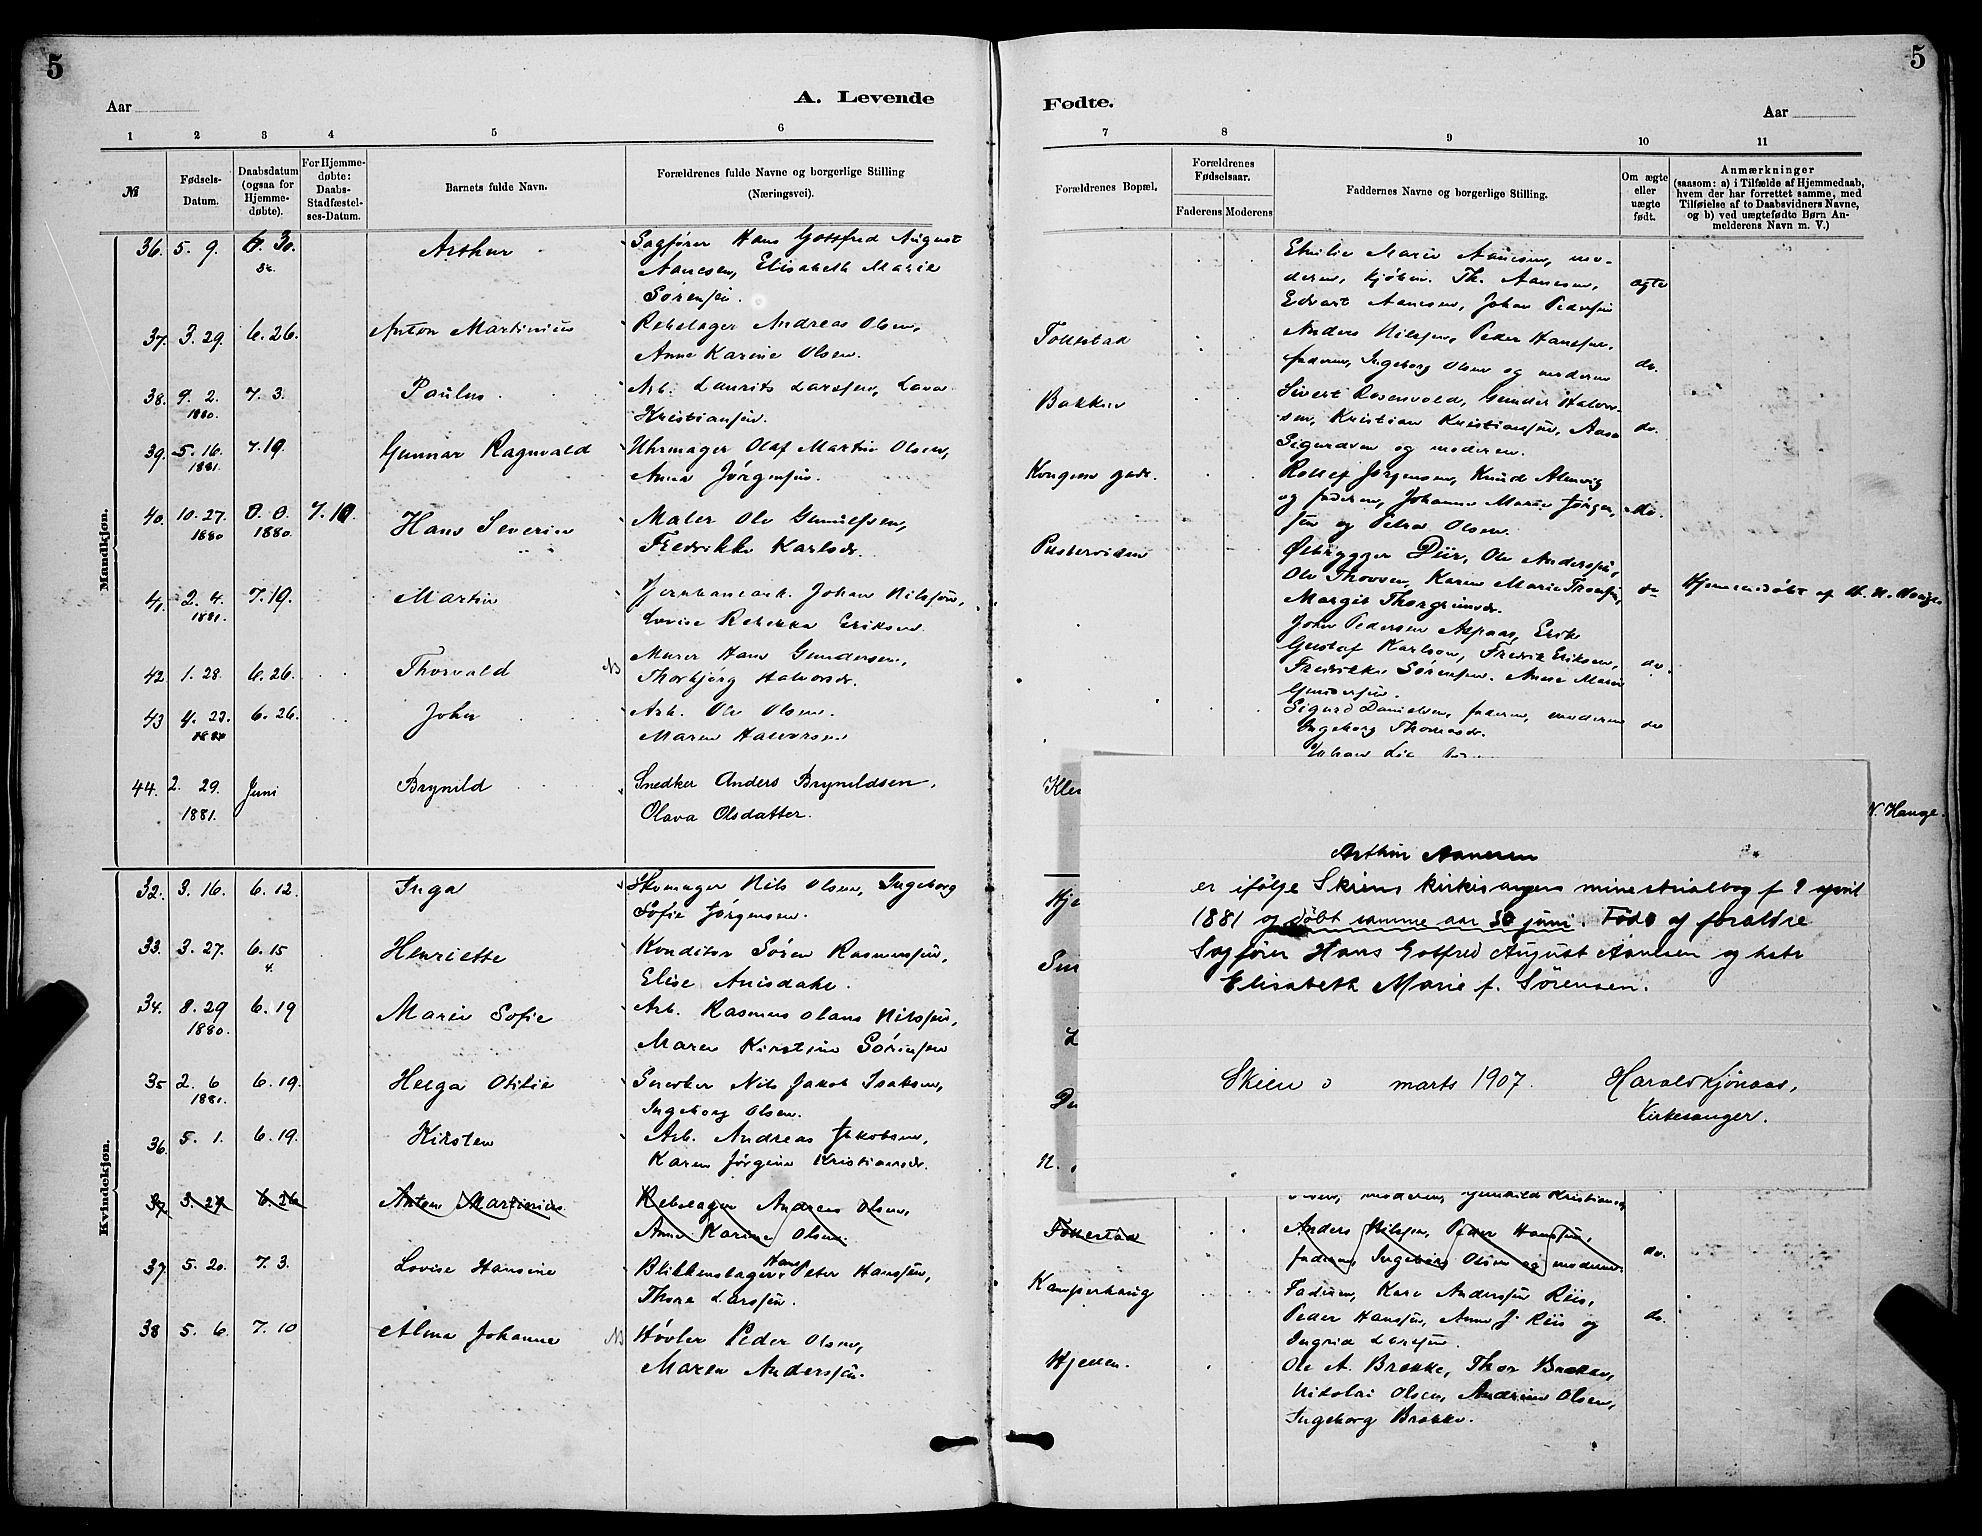 5
Aar
A. Levende
1 2 3 4 5 6
№
Fødsels-Datum.
Daabsdatum (ogsaa for Hjemme-døbte).
For Hjemme-døbte: Daabs-Stadfæstel-ses-Datum.
Barnets fulde Navn.
Forældrenes fulde Navne og borgerlige Stilling
(Næringsvei).
Mandkjøn.
36. 5. 9. 6. 30. Arthur Sagfører Hans Gottfred August
Aanesen, Elisabeth Marie
Sørensen.
37. 3. 29. 6. 26. Anton Martinius Rebslager Andreas Olsen,
Anne Karine Olsen.
38. 9. 2. 7. 3. Paulus Arb. Laurits Larssen, Lava
1880. Kristiansen.
39. 5. 16. 7. 19. Gunnar Ragnvald Uhrmager Olaf Martin Olsen,
1881. Anna Jørgensen.
40. 10. 27. 0. 0. 7. 10. Hans Severin Maler Ole Gunulfsen,
1880 1880. Fredrikke Karlsdr.
41. 2. 4. 7. 19. Martin Jernbanearb. Johan Nilssen,
1881. Lovise Rebekka Eriksen
42 1. 28. 6. 26. Thorvald NB Murer Hans Gundersen,
Thorbjørg Halvorsdr.
43 4. 22. 6. 26. John Arb. Ole Olsen.
Maren Halvorsen
44. 2. 29. Juni Brynild Snedker Anders Brynildsen,
1881. Olava Olsdatter.
Kvindekjøn.
32. 3. 16. 6. 12. Inga Skomager Nils Olsen, Ingeborg
Sofie Jørgensen.
33. 3. 27. 6. 15 Henriette Konditor Søren Rasmussen,
4. Elise
34. 8. 29 6. 19 Maren Sofie Arb. Rasmus Olaus Nilssen,
1880. Maren Kirstine Sørensen
35 2. 6 6. 19. Helga Otilie Snedker Nils Jakob Isaksen,
1881. Ingeborg Olsen.
36. 5. 1. 6. 19. Kirsten Arb. Andreas Jakobsen,
Karen Jørgine Kristiansdr.
37 3. 29 6. 26 Anton Martinius Rebslager Andreas Olsen,
Anne Karine Olsen.
37 5. 20. 7. 3. Lovise Hansine Blikkenslager Hans Peter Hanssen,
Thora Larssen.
38 5. 6. 7. 10 Alma Johanne NB Høvler Peder Olsen,
Maren Anderssen.
5
Fødte.
Aar
7 8 9 10 11
Forældrenes Bopæl.
Forældrenes Fødselsaar.
Faderens Moderens
Faddernes Navne og borgerlige Stilling.
Om ægte eller uægte født.
Anmærkninger
(saasom: a) i Tilfælde af Hjemmedaab,
hvem der har forrettet samme, med
Tilføielse af to Daabsvidners Navne,
og b) ved uægtefødte Børn An-
melderens Navn m. V.)
Emilie Marie Aanesen, mo-
deren, kjøbm. Th. Aanesen, ægte
Edvart Aanesen, Johan Pedersen
Follestad Anders Nilssen, Peder Hanssen,
faderen, Ingeborg Olsen og moderen do.
Bakken Sivert Rosenvold, Gunder Halvor-
sen, Kristian Kristiansen, Aase do.
Sigurdsen og moderen.
Kongens gade. Rollef Jørgensen, Knud
og faderen, Johanne Marie Jørgen- do.
sen og Petra Olsen.
Pustervidsen Ølbrygger Diir, Ole Anderssen,
Ole Thovsen, Karen Marie do Hjemmedøbt af H. N. Hauge
Margit Thorgrimsdr.
John Pedersen Aspaas, Erik
Gustaf Karlson, Fredrik Eriksen, do.
Fredrikke Sørensen. Anne Marie
Gundersen.
Sigurd Danielsen, faderen, moderen do
Ingeborg Thomasdr.
Johan Lie
Kle
N. Hauge.
Arthur Aanesen
er ifølge Skiens kirkesangers ministerialbog f. 9 april
1881 og døbt samme aar 30 juni. Født af foraldre
Sagfører Hans Gotfred August Aanesen og hstr
Elisabeth Marie f. Sørensen.
Skien marts 1907. Harald Kjønaas,
Kirkesanger.
Hje
Sm
N.
moderen, Gunhild Kristiansen
Follestad Anders Nilssen, Peder Hanssen,
faderen, Ingeborg Olsen og moderen. do.
Kamperhaug Faderen, Kare Anderssen Riis,
Peder Hanssen, Anne J. Riis og do.
Ingrid Larssen.
Hjellen. Ole A. Brekke, Thor Brekke,
Nikolai Olsen, Andrine Olsen,
Ingeborg Brekke.